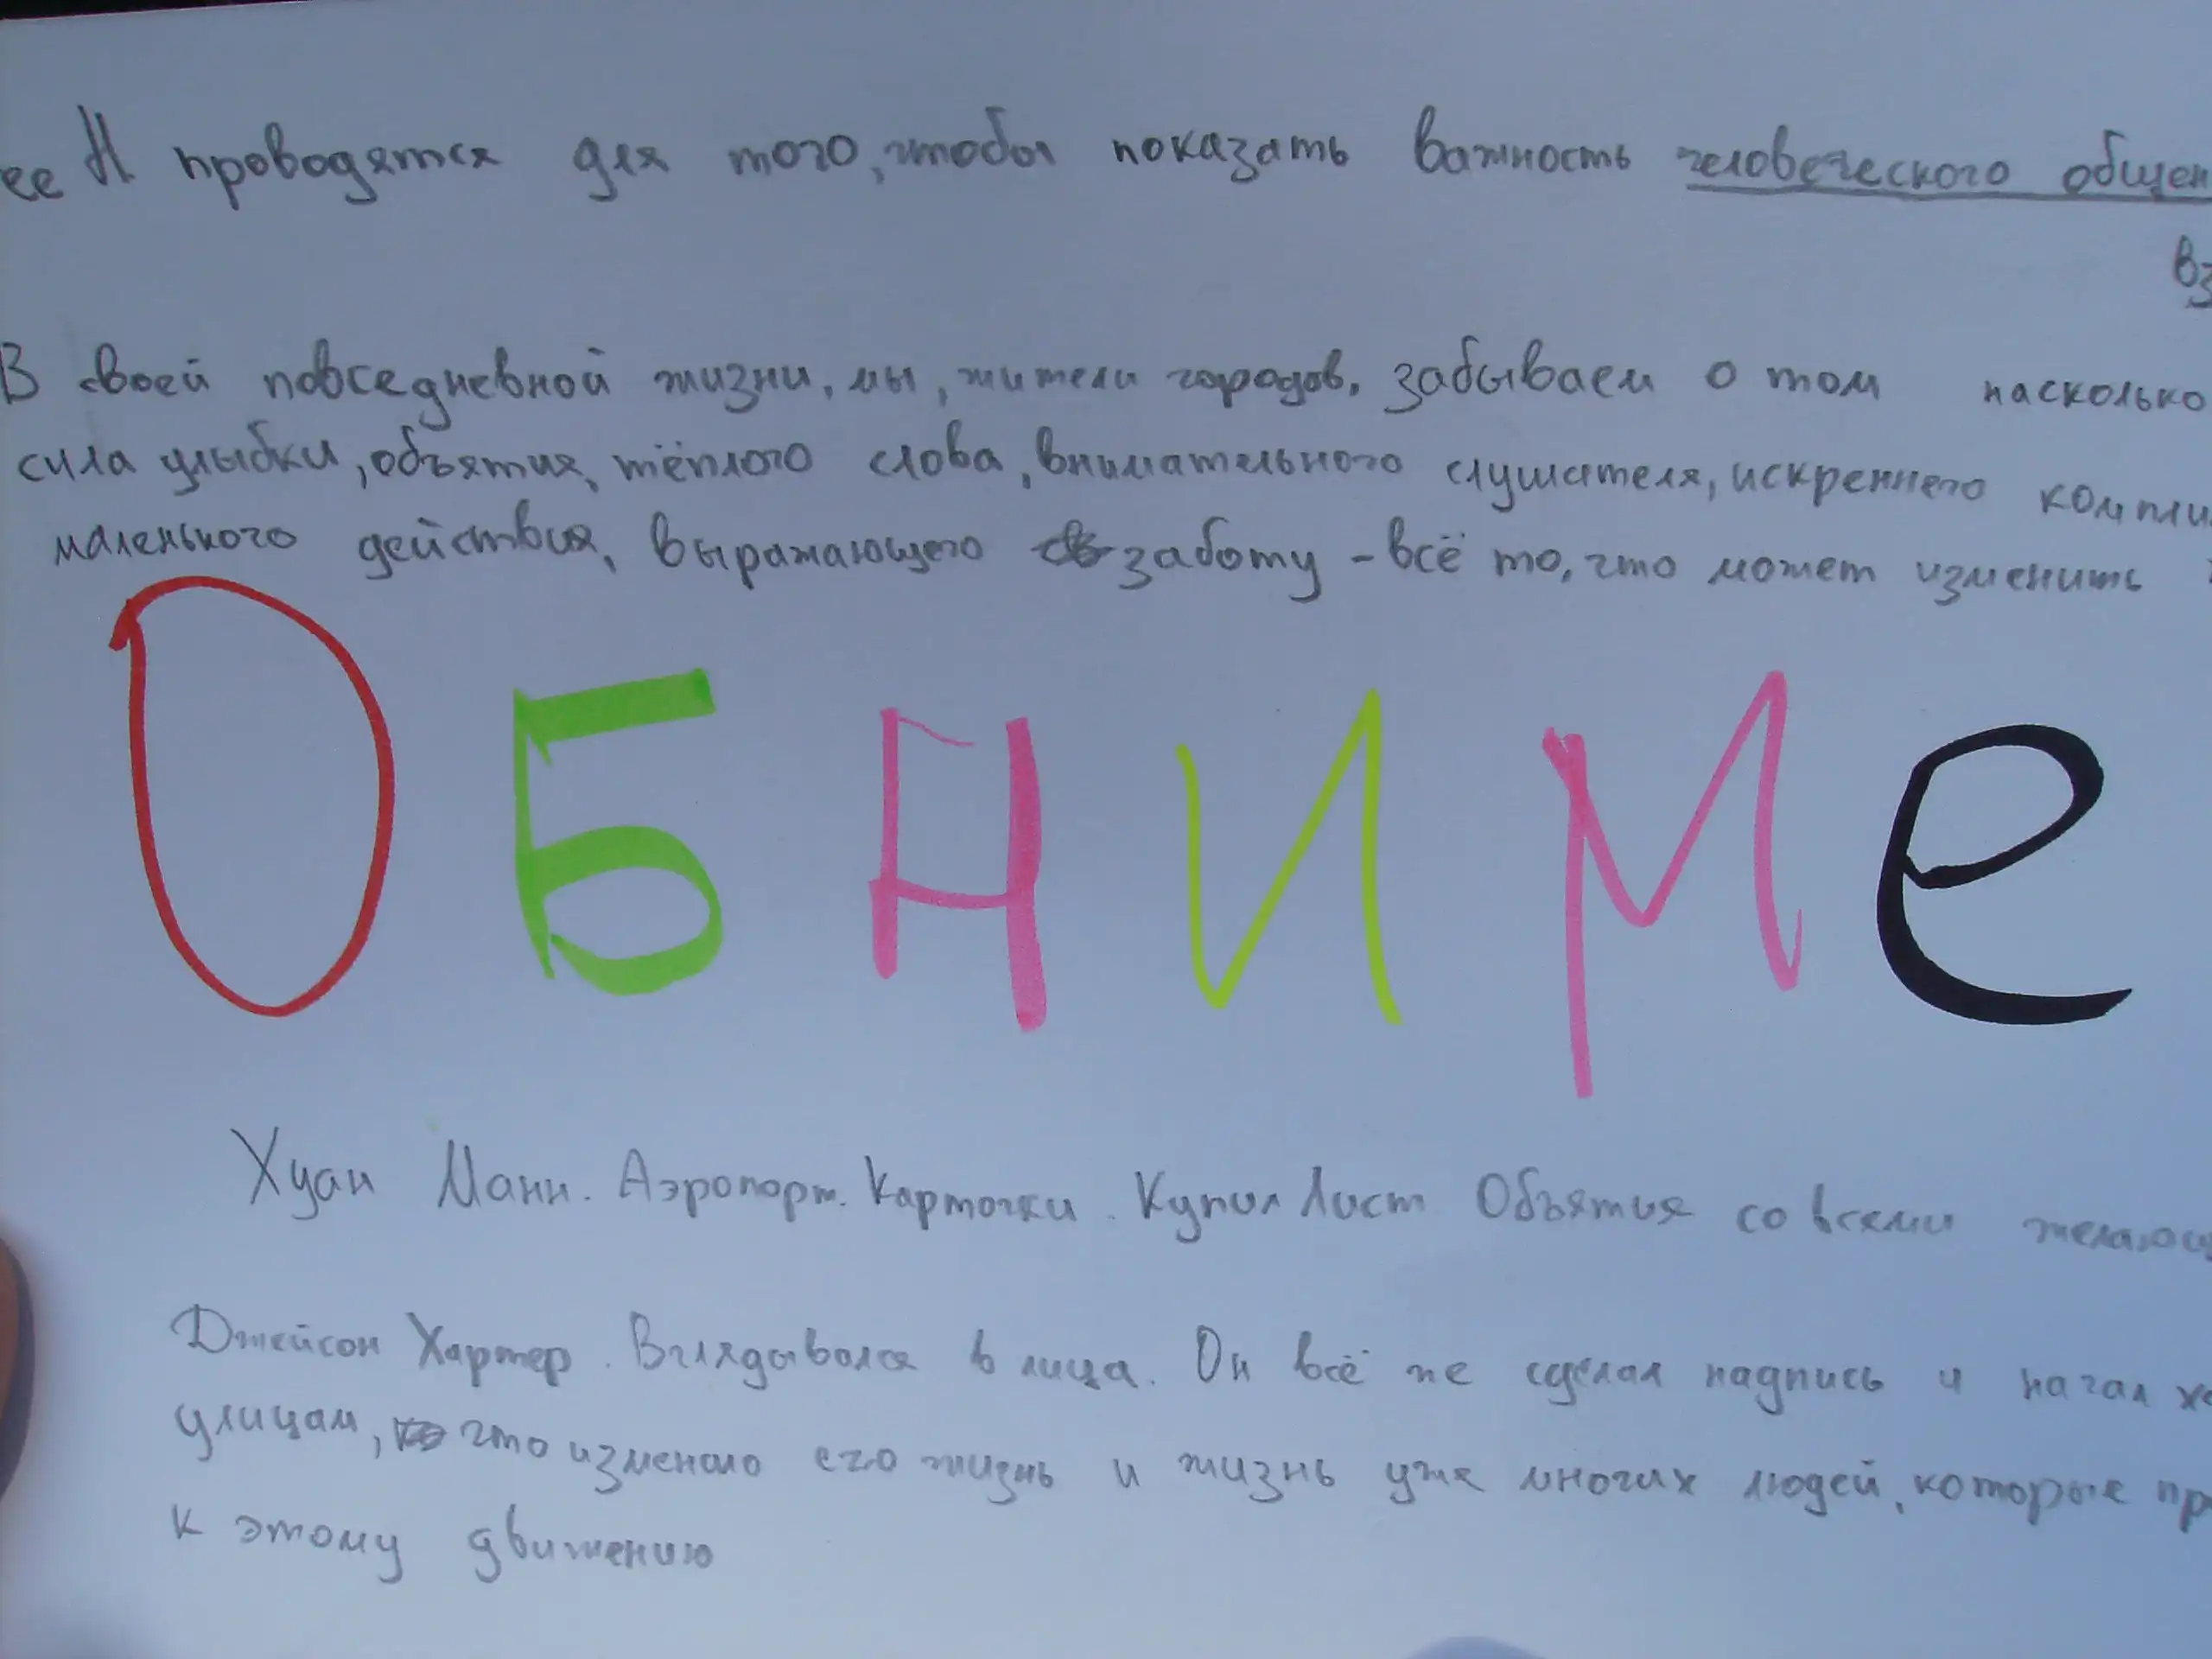 ее H проводятся для того, чтобы показать важность человеческого общен
вз
В своей повседневной жизни, мы, жители городов, забываем о том насколько
сила улыбки, объятия, тёплого слова, внимательного слушателя, искреннего компли
маленького действия, выражающего заботу - всё то, что может изменить
ОБНИМе
Хуан Манн. Аэропорт. Карточки. Купил Лист Объятия со всеми желающ
Джейсон Хартер. Вглядывался в лица. Он всё же сделал надпись и начал хо
улицам, что изменило его жизнь и жизнь уже многих людей, которые пр
к этому движению